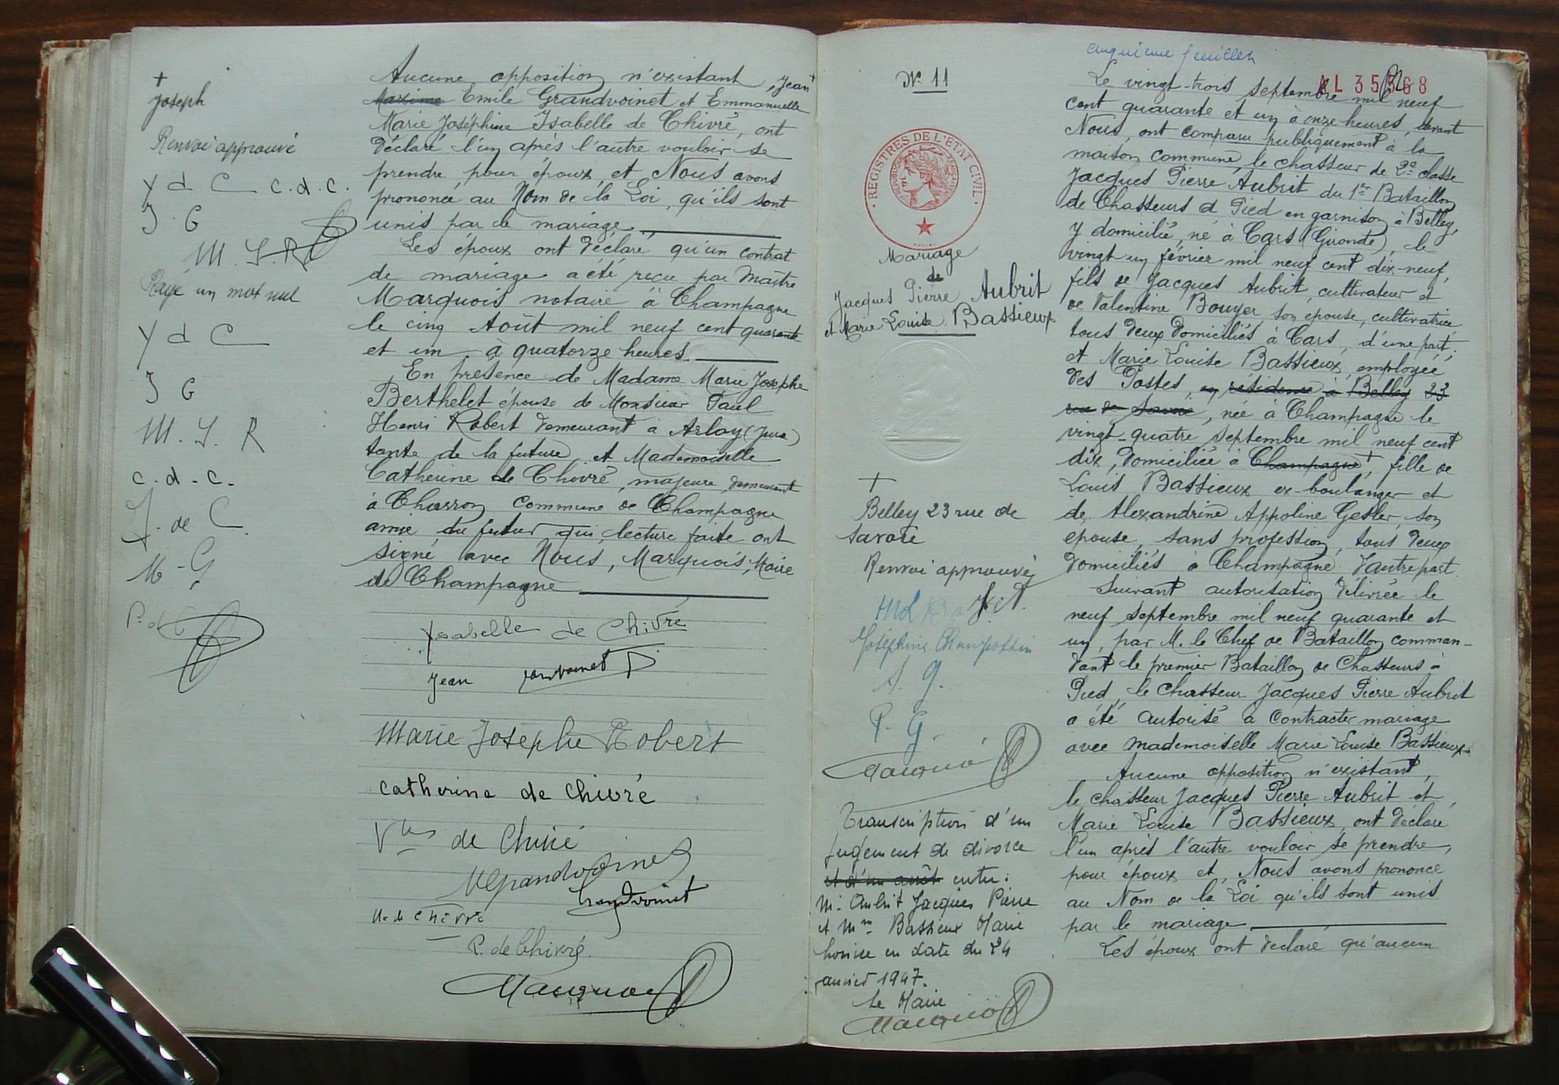 +
Joseph
Renvoi approuvé
Y d C c.d.c.
J. G
M. J. R
Rayé un mot nul
Y d C
J G
M. J. R
c. d. c.
J. de C
M. G
P. de C
Aucune opposition n'existant, Jean +
Maxime Emile Grandvoinet et Emmanuelle
Marie Joséphine Isabelle de Chivré, ont
déclaré l'un après l'autre vouloir se
prendre pour époux, et Nous avons
prononcé au Nom de la Loi, qu'ils sont
unis par le mariage
Les époux ont déclaré qu'un contrat
de mariage a été reçu par Maître
Marquois notaire à Champagne
le cinq Août mil neuf cent quarante
et un, à quatorze heures
En présence de Madame Marie Josephe
Berthelet épouse de Monsieur Paul
Henri Robert demeurant à Arlay (Jura)
tante de la future, et Mademoiselle
Catherine de Chivré, majeure, demeurant
à Charron commune de Champagne
amie du futur qui lecture faite ont
signé avec Nous, Marquois, Maire
de Champagne
Ysabelle de Chivré
Jean Grandvoinet
Marie Josephe Robert
Catherine de Chivré
Vte de Chivré
MGrandvoinet
Grandvoinet
de Chivré
P. de Chivré.
Marquois
N° 11
REGISTRES DE L'ETAT CIVIL
Mariage
de
Jacques Pierre Aubrit
et Marie Louise Bassieux
+
Belley 23 rue de
Savoie
Renvoi approuvé
Joséphine Champollin
S. G.
P. G.
Marquois
Transcription d'un
jugement de divorce
et d'un arrêt entre:
Mr Aubrit Jacques Pierre
et Mme Bassieux Marie
Louise en date du 24
janvier 1947.
Le Maire
Marquois
cinquième feuillet
AL 35368
Le vingt-trois septembre mil neuf
cent quarante et un à onze heures, devant
Nous, ont comparu publiquement à la
maison commune, le chasseur de 2e classe
Jacques Pierre Aubrit du 1er Bataillon
de Chasseurs à Pied en garnison à Belley,
y domicilié, né à Cars (Gironde), le
vingt un février mil neuf cent dix-neuf,
fils de Jacques Aubrit, cultivateur et
de Valentine Bouyer son épouse, cultivatrice
tous deux domiciliés à Cars, d'une part;
et Marie Louise Bassieux, employée
des Postes, en résidence à Belley 23
rue de Savoie, née à Champagne le
vingt-quatre septembre mil neuf cent
dix, domiciliée à Champagne +, fille de
Louis Bassieux ex-boulanger et
de Alexandrine Appoline Gesler, son
épouse, sans profession, tous deux
domiciliés à Champagne d'autre part
Suivant autorisation délivrée le
neuf septembre mil neuf quarante et
un, par M. le Chef de Bataillon comman-
dant le premier Bataillon de Chasseurs à
Pied, le chasseur Jacques Pierre Aubrit
a été autorisé à contracter mariage
avec mademoiselle Marie Louise Bassieux.
Aucune opposition n'existant,
le chasseur Jacques Pierre Aubrit et
Marie Louise Bassieux, ont déclaré
l'un après l'autre vouloir se prendre,
pour époux et, Nous avons prononcé
au Nom de la Loi qu'ils sont unis
par le mariage
Les époux ont déclaré qu'aucun